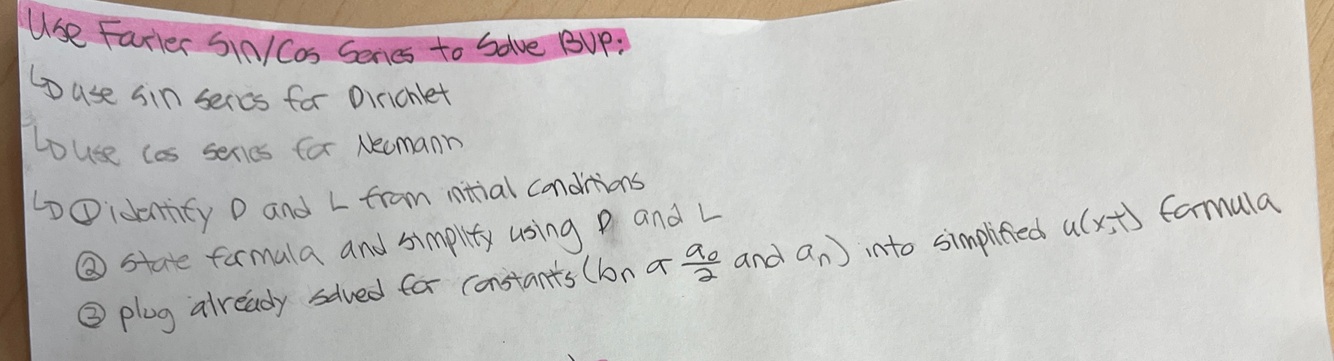 Use Fourier Sin/Cos Series to Solve BVP:
↳ use sin series for Dirichlet
↳ use cos series for Neumann
↳ ① identify D and L from initial conditions
② state formula and simplify using D and L
③ plug already solved for constants (bn or a₀/2 and an) into simplified u(x,t) formula